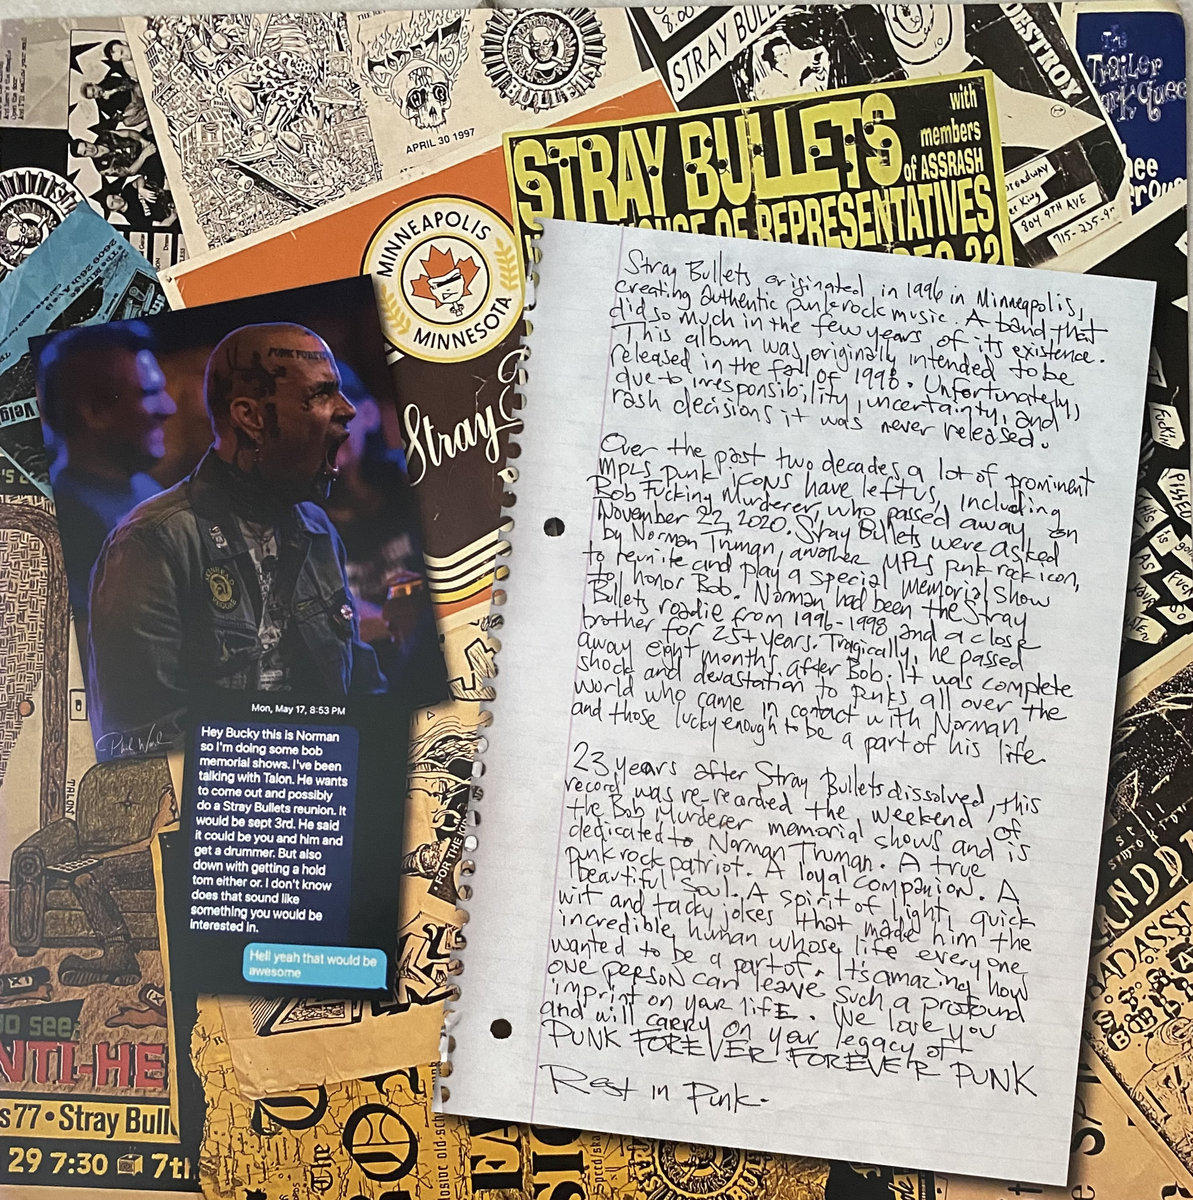 8:00
STRAY BULLETS
DESTROY
Trailer
APRIL 30 1997
BULLETS
with
members
of ASSRASH
STRAY BULLETS
HOUSE OF REPRESENTATIVES
DEC 22
804 9TH AVE
715-235-9
MINNEAPOLIS
MINNESOTA
Stray
PUNK FOREVER
Mon, May 17, 8:53 PM
Hey Bucky this is Norman
so I'm doing some bob
memorial shows. I've been
talking with Talon. He wants
to come out and possibly
do a Stray Bullets reunion. It
would be sept 3rd. He said
it could be you and him and
get a drummer. But also
down with getting a hold
tom either or. I don't know
does that sound like
something you would be
interested in.
Hell yeah that would be
awesome
Stray Bullets originated in 1996 in Minneapolis,
creating authentic punk rock music. A band that
did so much in the few years of its existence.
This album was originally intended to be
released in the fall of 1998. Unfortunately,
due to irresponsibility, uncertainty, and
rash decisions it was never released.
Over the past two decades a lot of prominent
MPLS punk icons have left us, including
Bob Fucking Murderer who passed away on
November 22, 2020. Stray Bullets were asked
by Norman Truman, another MPLS punk rock icon,
to reunite and play a special memorial show
to honor Bob. Norman had been the Stray
Bullets roadie from 1996-1998 and a close
brother for 25+ years. Tragically, he passed
away eight months after Bob. It was complete
shock and devastation to punks all over the
world who came in contact with Norman,
and those lucky enough to be a part of his life.
23 years after Stray Bullets dissolved, this
record was re-recorded the weekend of
the Bob Murderer memorial shows and is
dedicated to Norman Truman. A true
punk rock patriot. A loyal companion. A
beautiful soul. A spirit of light, quick
wit and tacky jokes that made him the
incredible human whose life everyone
wanted to be a part of. It's amazing how
one person can leave such a profound
imprint on your life. We love you
and will carry on your legacy of
PUNK FOREVER FOREVER PUNK
Rest in Punk.
FUCKIN
PISSED
TALON
FOR THE
see:
NTI-HE
s77 • Stray Bull
29 7:30 7th